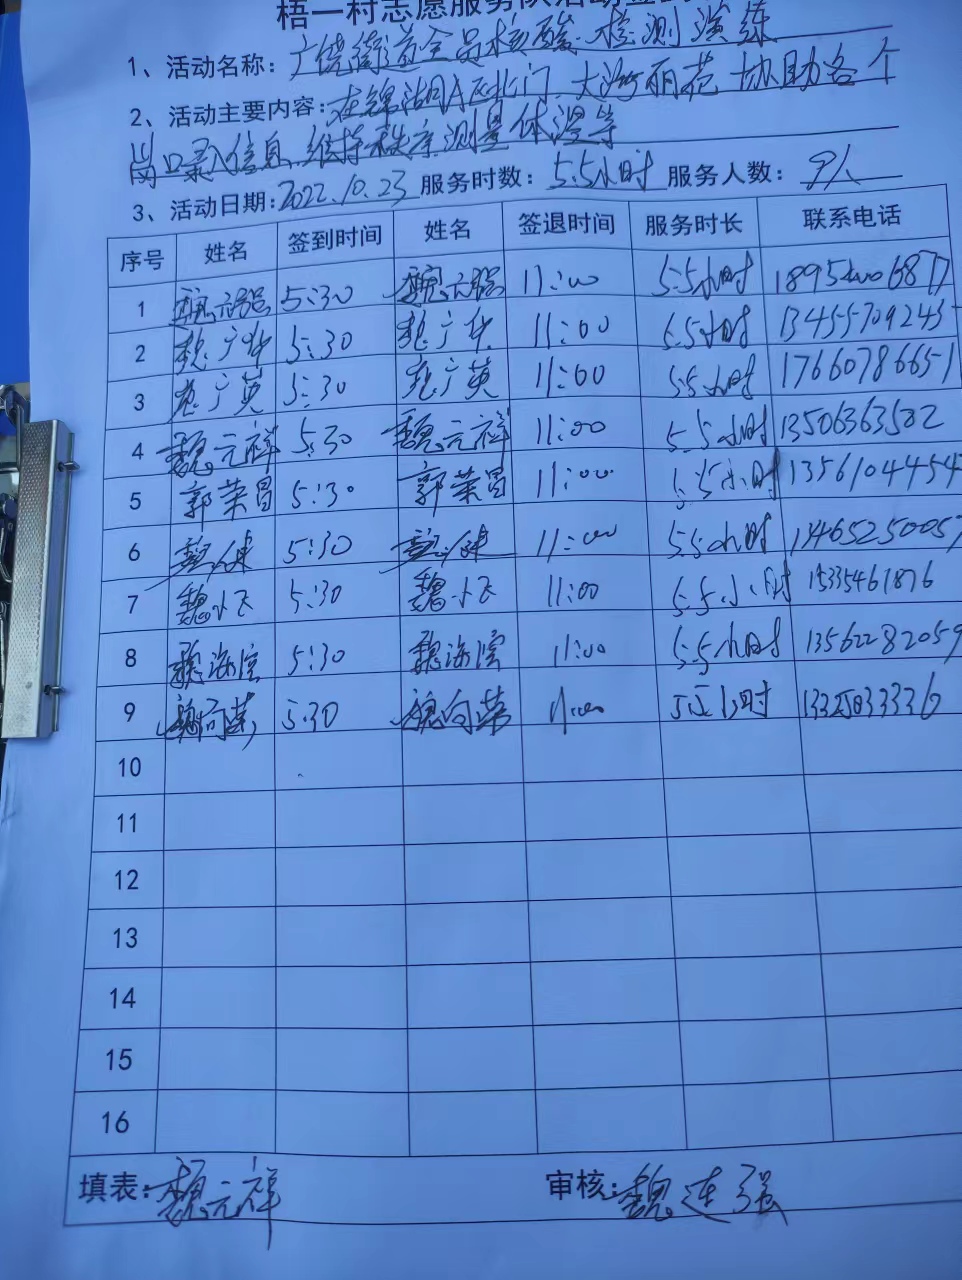 梧一村志愿服务队活动签到
1、活动名称：广饶街道全员核酸检测演练
2、活动主要内容：在锦湖A区北门、大海丽苑协助各个
岗口录入信息、维持秩序、测量体温等
3、活动日期：2022.10.23 服务时数：5.5小时 服务人数：9人
序号 姓名 签到时间 姓名 签退时间 服务时长 联系电话
1 魏元强 5:30 魏元强 11:00 5.5小时
2 魏广华 5:30 魏广华 11:00 5.5小时 1345570924
3 魏广英 5:30 魏广英 11:00 5.5小时 17660786651
4 魏元祥 5:30 魏元祥 11:00 5.5小时 13506363502
5 郭荣昌 5:30 郭荣昌 11:00 5.5小时 1356104454
6 5:30 11:00 5.5小时 1346525005
7 魏小飞 5:30 魏小飞 11:00 5.5小时 15335461876
8 魏海滨 5:30 魏海滨 11:00 5.5小时 13562282059
9 魏向荣 5:30 魏向荣 11:00 5.5小时
10
11
12
13
14
15
16
填表：魏元祥 审核：魏连强